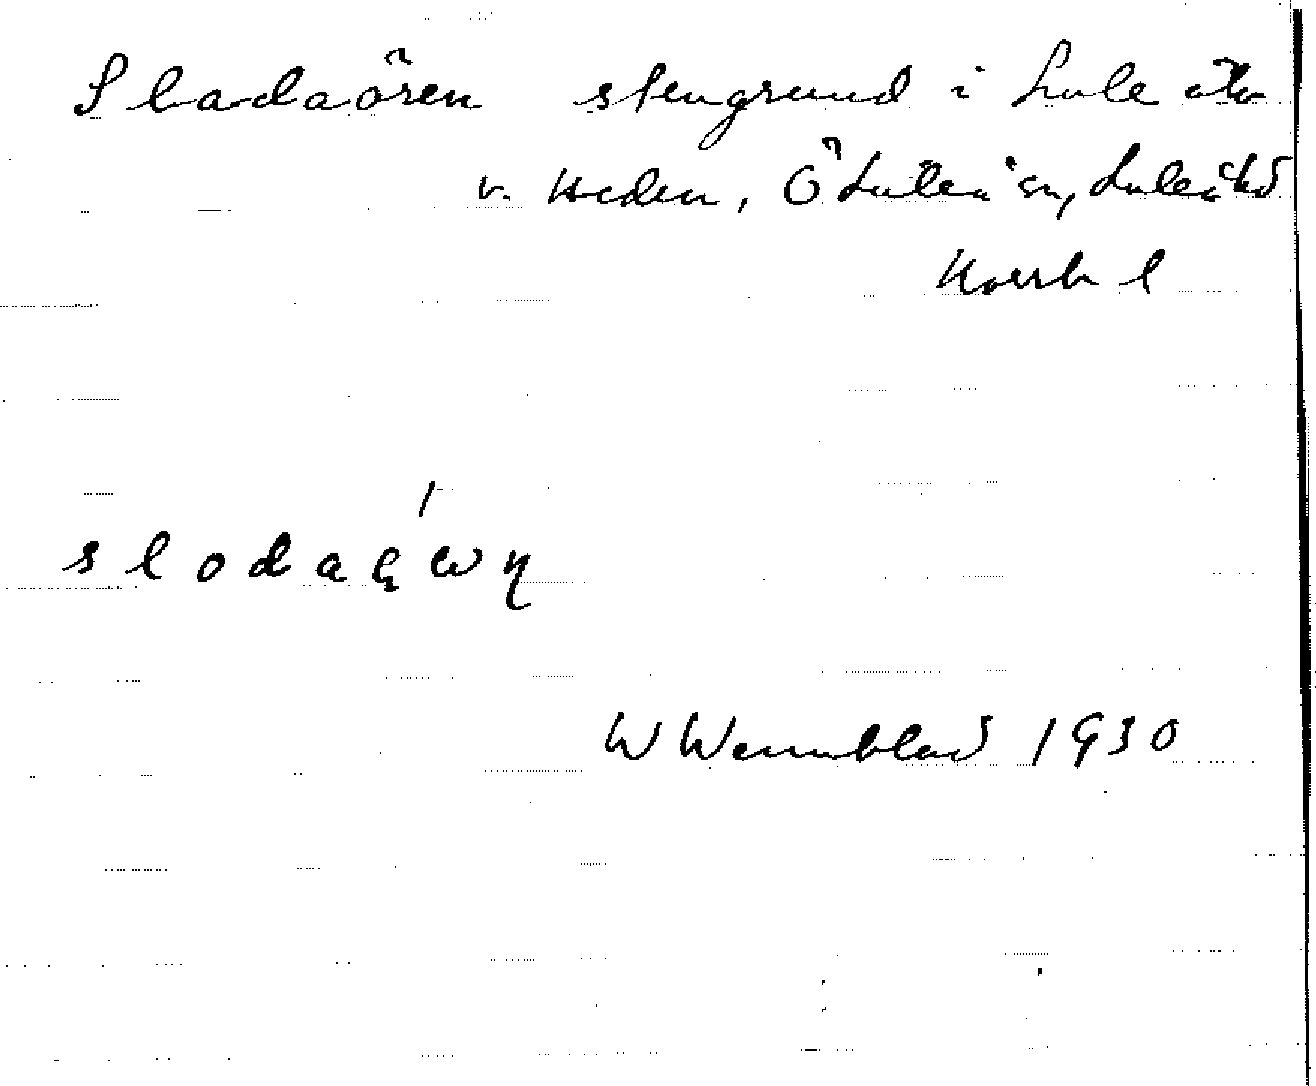 Sladaören stengrund i Lule älv
v. Heden, Ö Luleå sn, Luleå td
Norrb l
slodaęωη
W Wennblad 1930